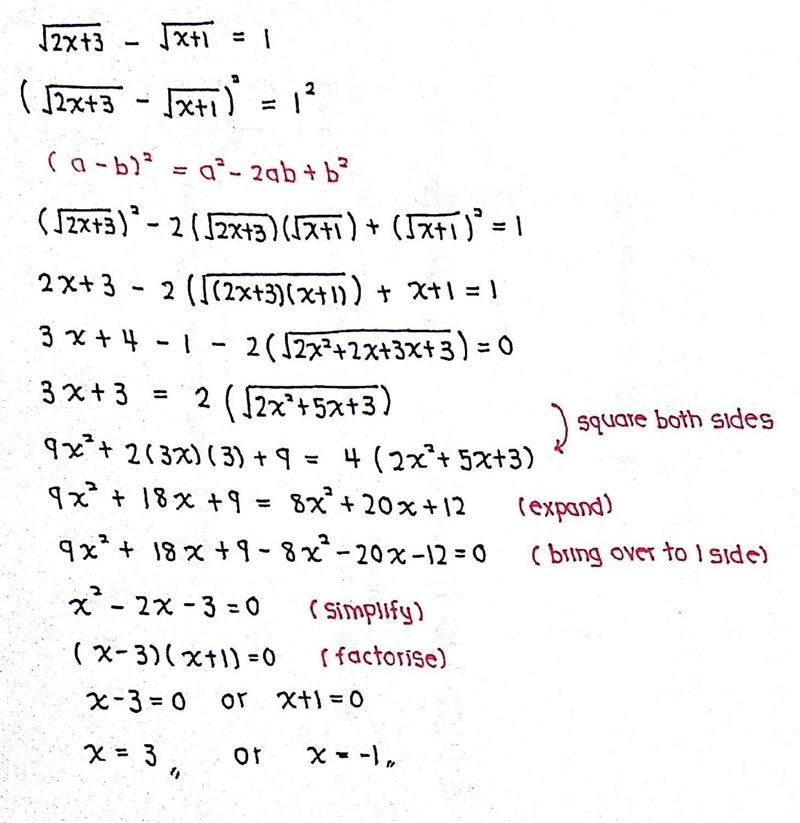 √(2x+3) - √(x+1) = 1
(√(2x+3) - √(x+1))² = 1²
(a-b)² = a² - 2ab + b²
(√(2x+3))² - 2(√(2x+3))(√(x+1)) + (√(x+1))² = 1
2x+3 - 2(√((2x+3)(x+1))) + x+1 = 1
3x+4 - 1 - 2(√(2x²+2x+3x+3)) = 0
3x+3 = 2(√(2x²+5x+3))
square both sides
9x² + 2(3x)(3) + 9 = 4(2x²+5x+3)
9x² + 18x + 9 = 8x² + 20x + 12 (expand)
9x² + 18x + 9 - 8x² - 20x - 12 = 0 (bring over to 1 side)
x² - 2x - 3 = 0 (simplify)
(x-3)(x+1) = 0 (factorise)
x-3 = 0 or x+1 = 0
x = 3,, or x = -1,,